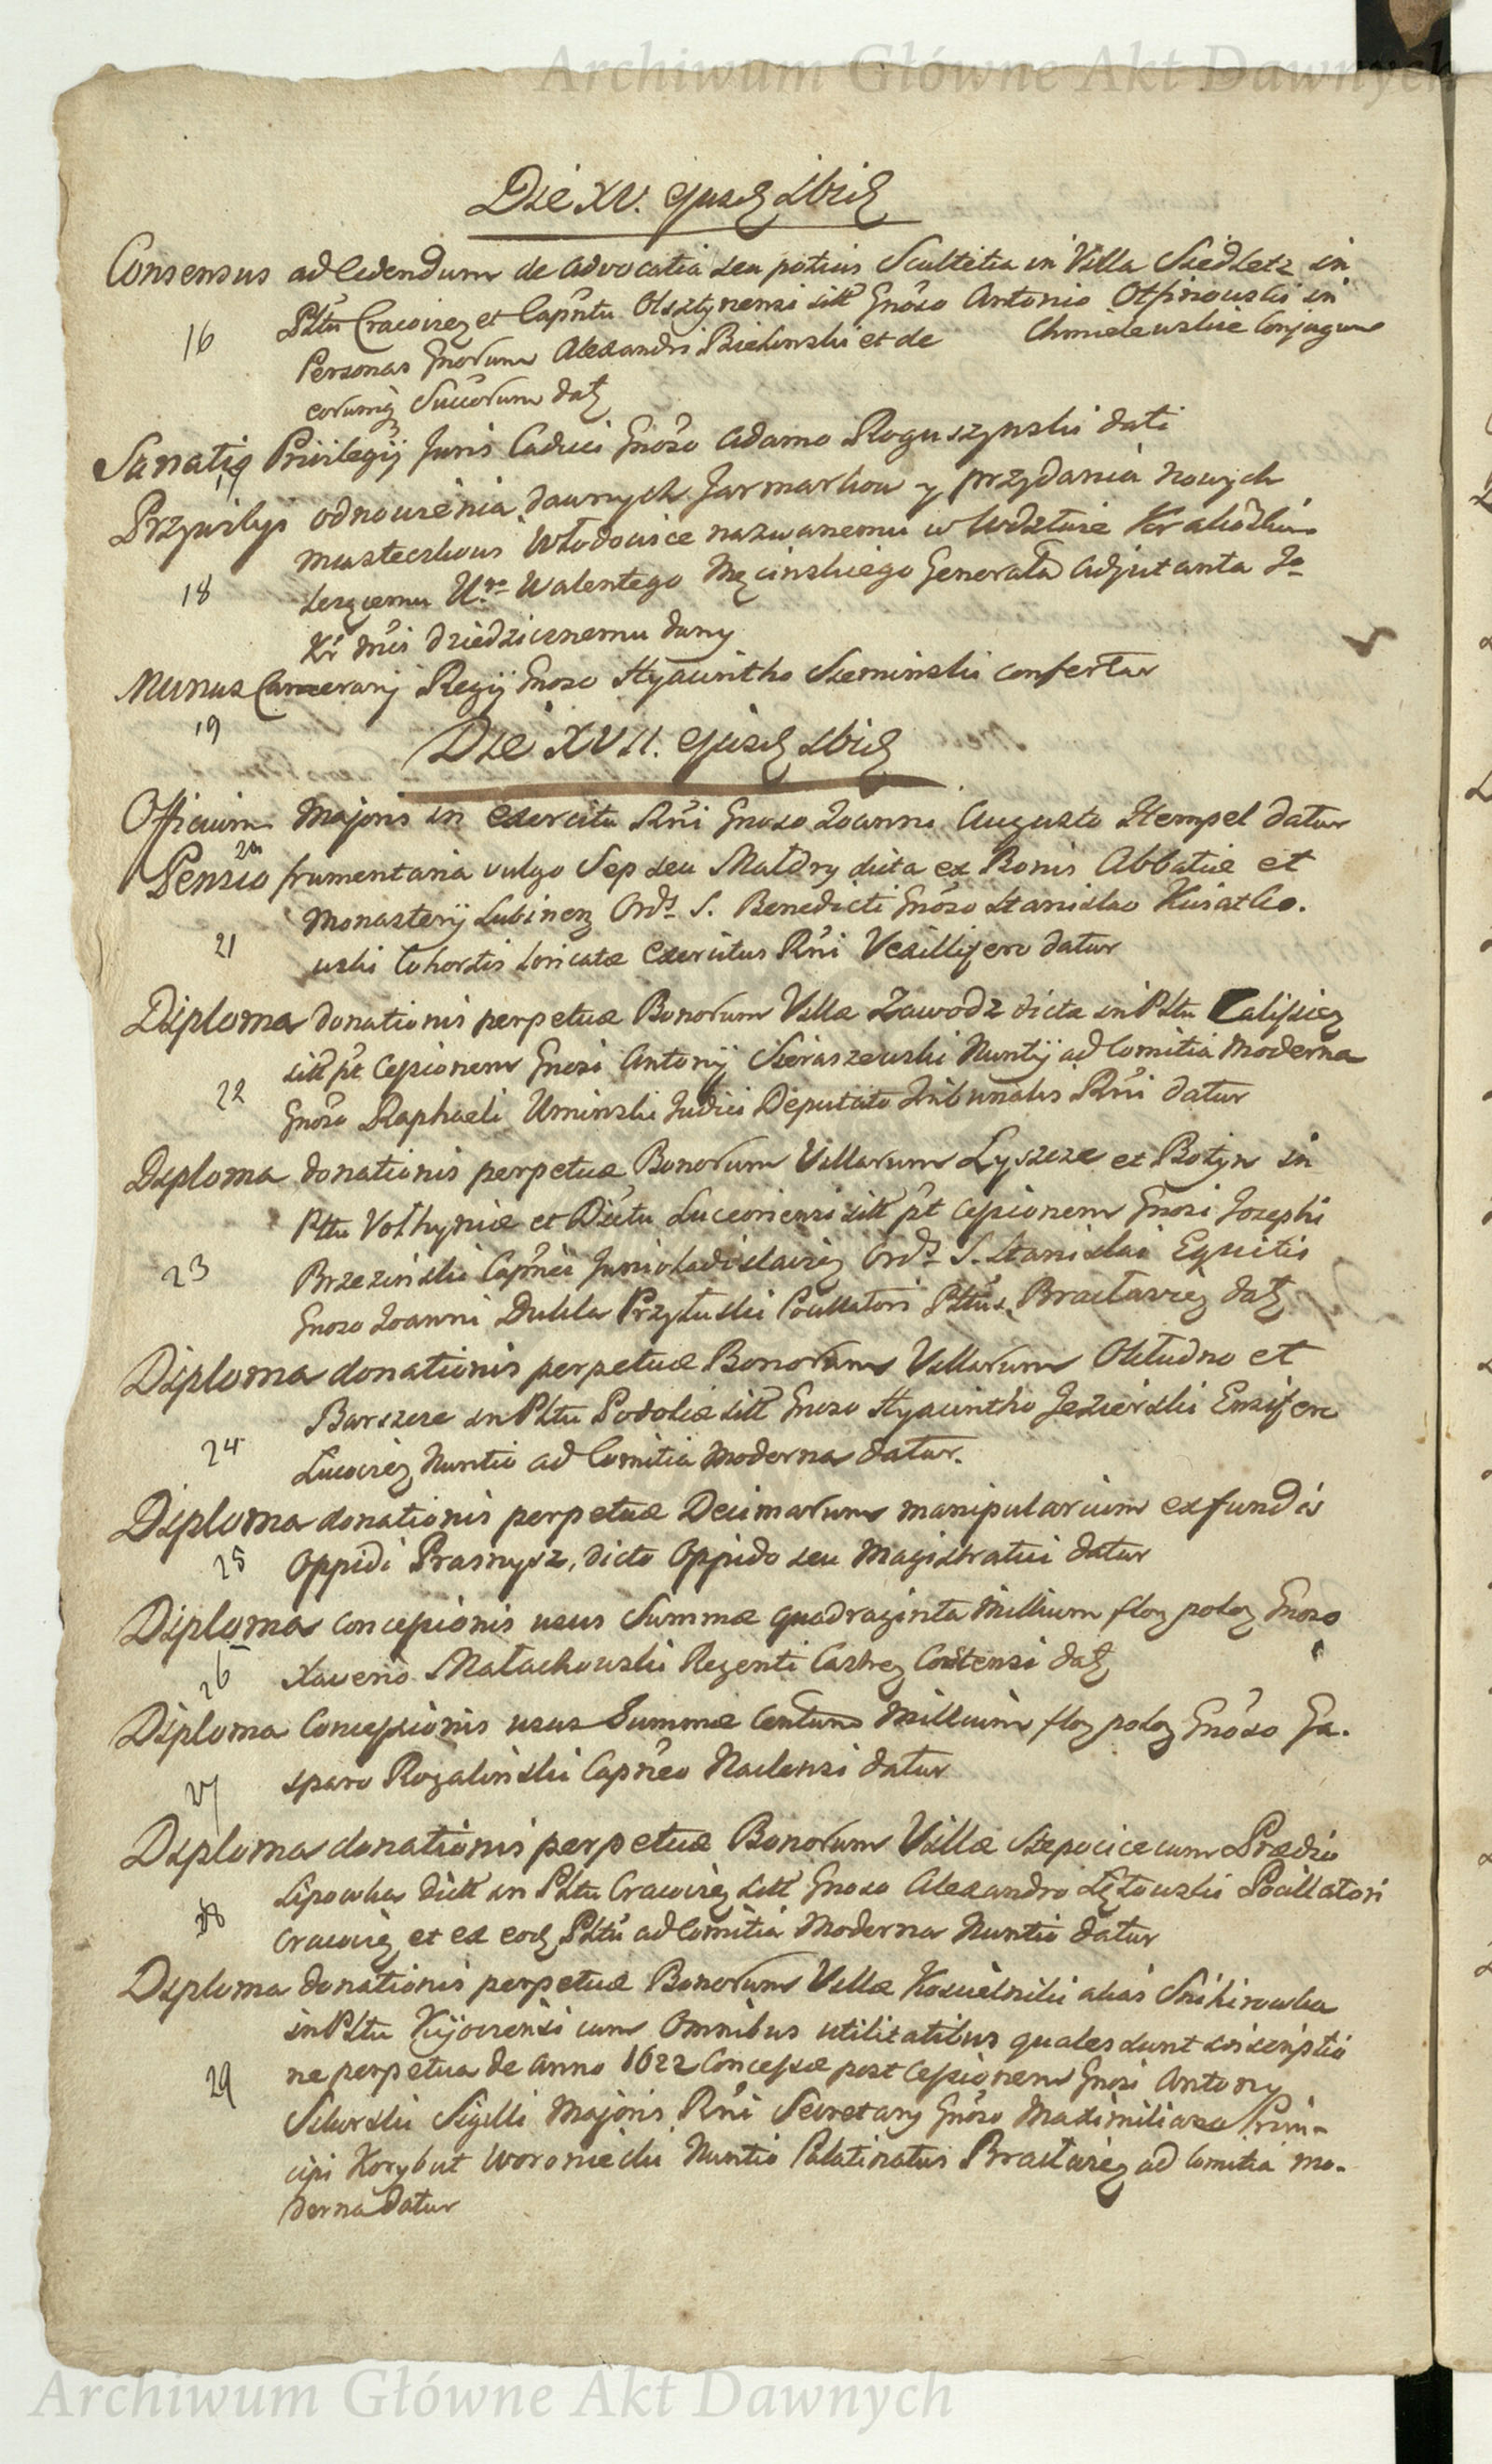 Archiwum Główne Akt Dawnych
Die XV. ejusd
Consensus ad cedendum de Advocatia seu potius Scultetia in Villa Siedletz in
16
Pltu Cracovien et Capntu Olsztynensi sitt Gnoso Antonio Otfinowski in
Personas Gnorum Alexandri Bielinski et de Chmielewskie Conjugum
eorumq Succorum dat
Sanatio Privilegij Juris Caduci Gnoso Adamo Roguszynski dati
17
Przywiley odnowienia dawnych Jarmarkow y przydania nowych
miasteczkowi Włodowice nazwanemu w Wdztwie Krakowskim
18
leżącemu Ur. Walentego Męcinskiego Generała Adjutanta Jo
Kr Mci dziedzicznemu dany
Munus Camerarij Regij Gnoso Hyacintho Sieminski confertur
19
Die XVII. ejusd
Officium Majoris in Exercitu Rni Gnoso Joanni Augusto Hempel datur
20
Pensio frumentaria vulgo Sep seu Małdry dicta ex Bonis Abbatiæ et
Monasterij Lubinen Ords S. Benedicti Gnoso Stanislao Kwiatko.
21
wski Cohortis loricatæ Exercitus Rni Vexillifero datur
Diploma donationis perpetuæ Bonorum Villæ Zawodz dictæ in Pltu Calissien
sitt pt Cessionem Gnosi Antonij Sieraszewski Nuntij ad Comitia moderna
22
Gnoso Raphaeli Uminski Judici Deputato Tribunalis Rni datur
Diploma donationis perpetuæ Bonorum Villarum Łyszcze et Botyn in
Pltu Volhyniæ et Dictu Luceoriensi sitt pt Cessionem Gnosi Josephi
23
Brzezinski Capnei Juniwladislavien Ords S. Stanislai Equitis
Gnoso Joanni Dukla Przyłuski Pocillatori Pltus Braclavien dat
Diploma donationis perpetuæ Bonorum Villarum Obłudno et
Barszcze in Pltu Podoliæ sitt Gnoso Hyacintho Jezierski Ensifero
24
Lucovien Nuntio ad Comitia moderna datur.
Diploma donationis perpetuæ Decimarum manipularium ex fundis
25
Oppidi Prasnysz, dicto Oppido seu Magistratui datur
Diploma concessionis usus Summæ quadraginta Millium flor polon Gnoso
26
Xaverio Małachowski Regenti Castren Costensi dat
Diploma Concessionis usus Summæ Centum Millium flor polon Gnoso Ga.
27
sparo Rogalinski Capneo Naclensi datur
Diploma donationis perpetuæ Bonorum Villæ Stepocice cum Prædio
Lipowka dictt in Pltu Cracovien sitt Gnoso Alexandro Łętowski Pocillatori
28
Cracovien et ex eod Pltu ad Comitia Moderna Nuntio datur
Diploma donationis perpetuæ Bonorum Villæ Koscielniki alias Snihirowka
in Pltu Kijoviensi cum Omnibus utilitatibus quales sunt inscriptio
29
ne perpetua de Anno 1622 Concessæ post Cessionem Gnosi Antony
Sikorski Sigilli Majoris Rni Secretary Gnoso Maximiliano Prin-
cipi Korybut Woroniecki Nuntio Palatinatus Braclavien ad Comitia mo.
derna datur
Archiwum Główne Akt Dawnych